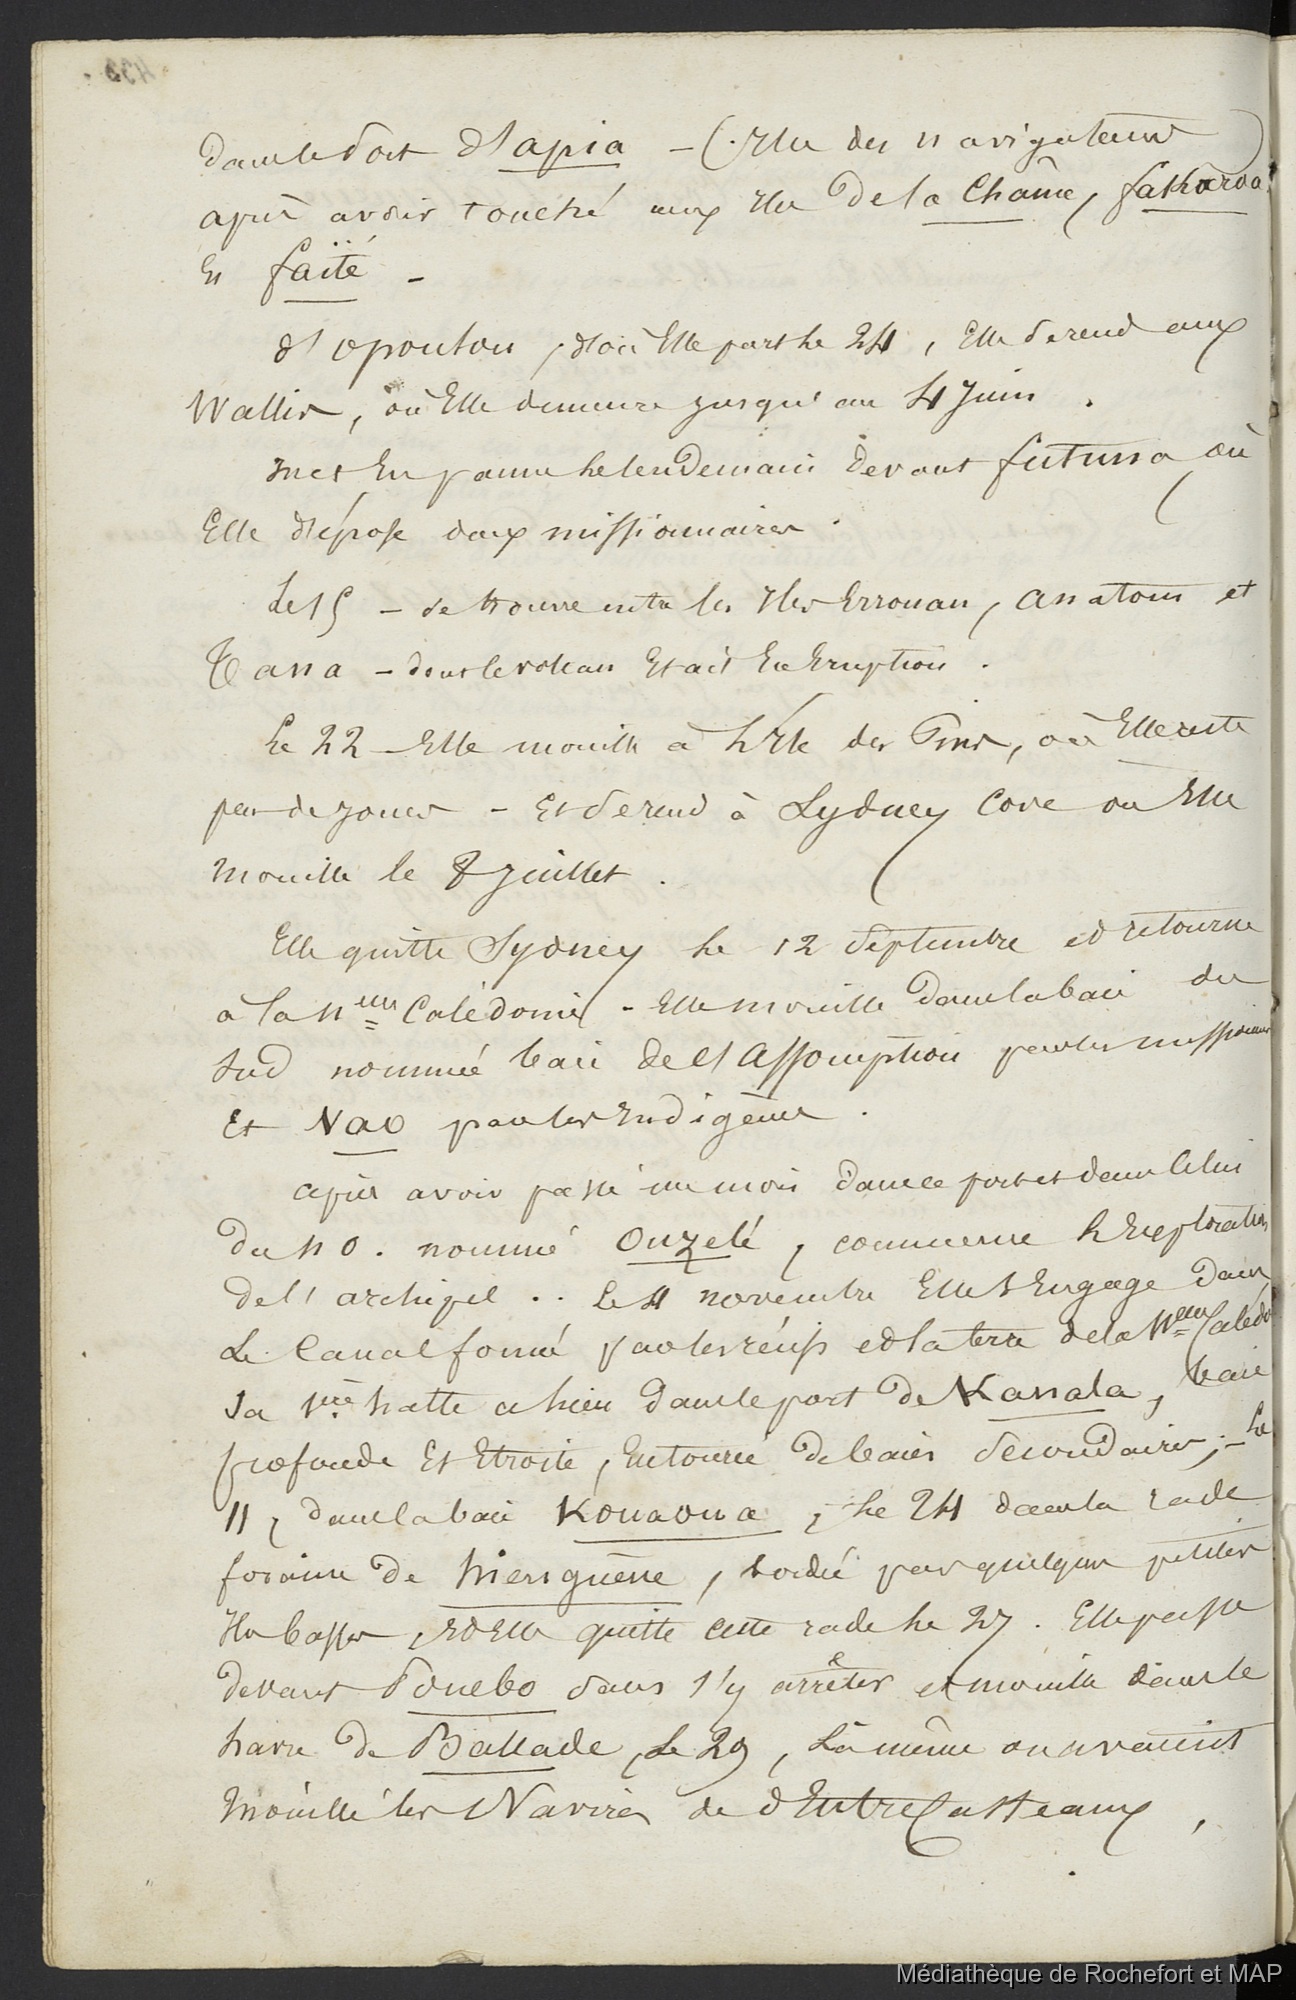 dans le Port d'apia – (Iles des navigateurs)
après avoir touché aux Iles de la Chaîne, fakarva
Et faïté –
d'opoulou, d'où Elle part le 24, Elle se rend aux
Wallis, où Elle demeure jusqu'au 4 Juin.
met En panne le lendemain devant futuna où
Elle dépose deux missionnaires.
Le 15 – se trouve entre les Iles Errouan, anatom et
Tana – dont le volcan Etait En Eruption.
Le 22 – Elle mouille à L'Ile des Pins, où Elle reste
peu de jours – Et se rend à Sydney Cove où Elle
mouille le 8 Juillet.
Elle quitte Sydney le 12 septembre et retourne
à la Nelle Calédonie – Elle mouille dans la baie du
Sud nommée baie de l'Assomption par les missionnaires
Et Nao par les Indigènes.
après avoir passé un mois dans ce port et dans celui
du N O. nommé Ouzelé, commence L'Exploration
de l'archipel .. Le 4 novembre Elle s'Engage dans
Le Canal formé par les récifs et la terre de la Nelle Calédo
Sa 1ère halte a lieu dans le port de Kanala, baie
profonde Et Etroite, Entourée de baies secondaires; – Le
11, dans la baie Kouaoua, Le 24 dans la rade
foraine de hienguène, bordée par quelques petites
Iles basses, Et Elle quitte cette rade le 27. Elle passe
devant Pouebo sans s'y arrêter et mouille dans le
havre de Ballade, Le 29, Là même ou avaient
mouillé les Navires de d'EntreCasteaux,
Médiathèque de Rochefort et MAP